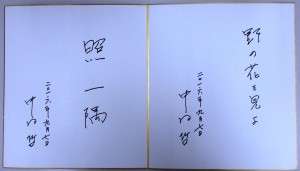 野の花を見よ
二〇一六年九月七日
中村哲
照一隅
二〇一六年九月七日
中村哲